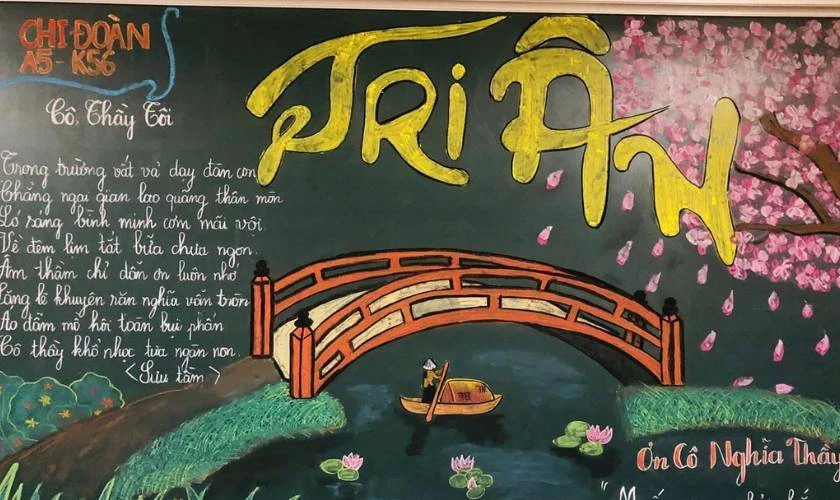 CHI ĐOÀN
A5 - K56
TRI ÂN
Cô, Thầy Tôi
Trong trường vất vả dạy đàn con
Chẳng ngại gian lao quảng thân mòn
Ló sáng bình minh cơm mãi vội
Về đêm lim tắt bữa chưa ngon
Âm thầm chỉ dẫn ơn luôn nhớ
Lặng lẽ khuyên răn nghĩa vẫn tròn
Áo đẫm mồ hôi toàn bụi phấn
Cô thầy khổ nhọc tựa ngàn non.
<Sưu tầm>
Ơn Cô Nghĩa Thầy